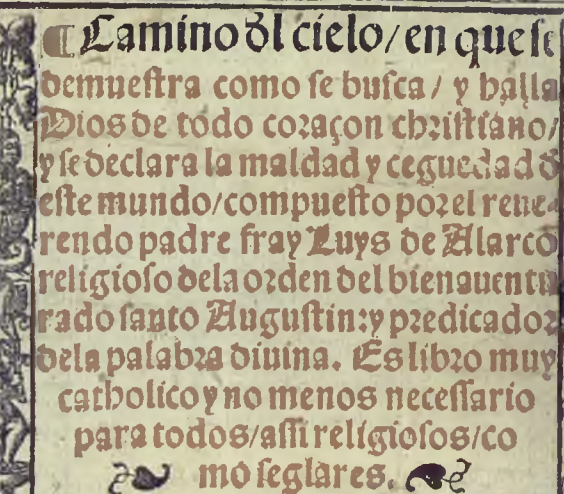 ¶ Camino dl cielo/ en que se
demuestra como se busca/ y halla
Dios de todo coraçon christiano/
y se declara la maldad y ceguedad d
este mundo/ compuesto por el reue-
rendo padre fray Luys de Alarco
religioso dela orden del bienauentu
rado santo Augustin: y predicador
dela palabra diuina. Es libro muy
catholico y no menos necessario
para todos/ assi religiosos/ co
mo seglares.